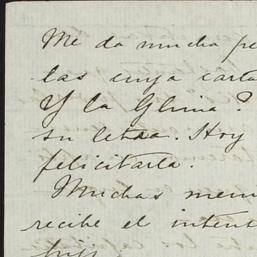 Me da mucha pe
las cuya carta
Y la Gloria?
su letra. Hoy
felicitarla.
Muchas mem
recibe el intent